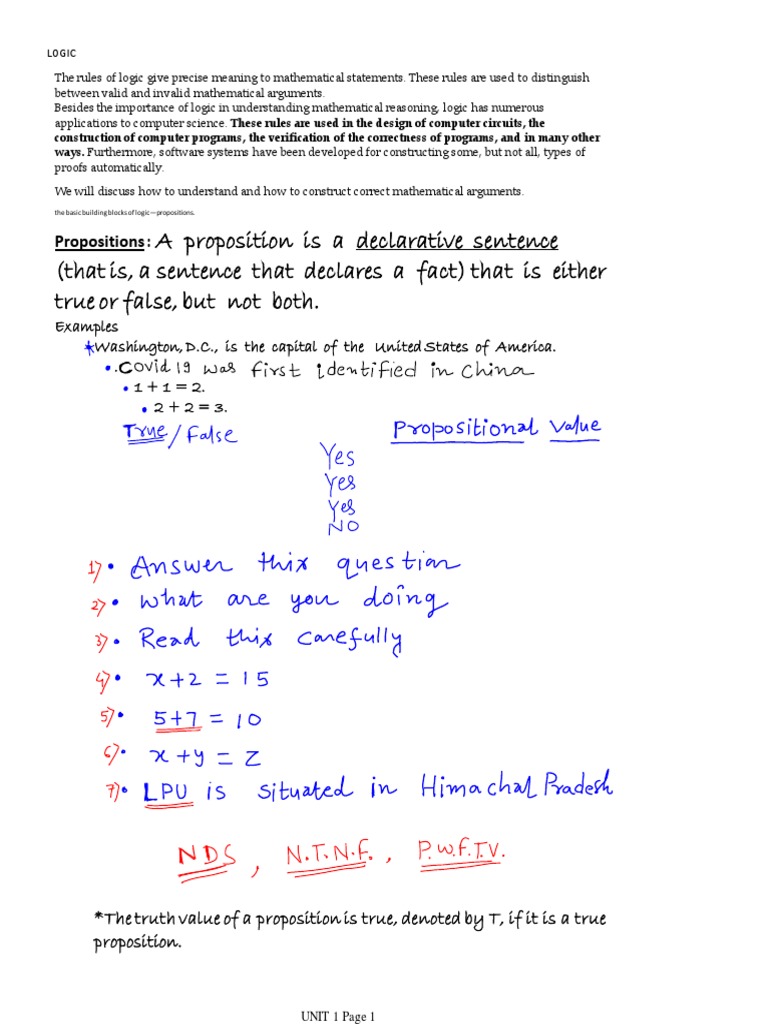 LOGIC
The rules of logic give precise meaning to mathematical statements. These rules are used to distinguish
between valid and invalid mathematical arguments.
Besides the importance of logic in understanding mathematical reasoning, logic has numerous
applications to computer science. These rules are used in the design of computer circuits, the
construction of computer programs, the verification of the correctness of programs, and in many other
ways. Furthermore, software systems have been developed for constructing some, but not all, types of
proofs automatically.
We will discuss how to understand and how to construct correct mathematical arguments.
the basic building blocks of logic—propositions.
Propositions: A proposition is a declarative sentence
(that is, a sentence that declares a fact) that is either
true or false, but not both.
Examples
*Washington, D.C., is the capital of the United States of America.
•.Covid 19 was first identified in China
• 1 + 1 = 2.
• 2 + 2 = 3.
True / False Propositional Value
Yes
Yes
Yes
NO
1) • Answer this question
2) • What are you doing
3) • Read this carefully
4) • x+2 = 15
5) • 5+7 = 10
6) • x+y = z
7) • LPU is situated in Himachal Pradesh
NDS, N.T.N.F., P.W.F.T.V.
*The truth value of a proposition is true, denoted by T, if it is a true
proposition.
UNIT 1 Page 1